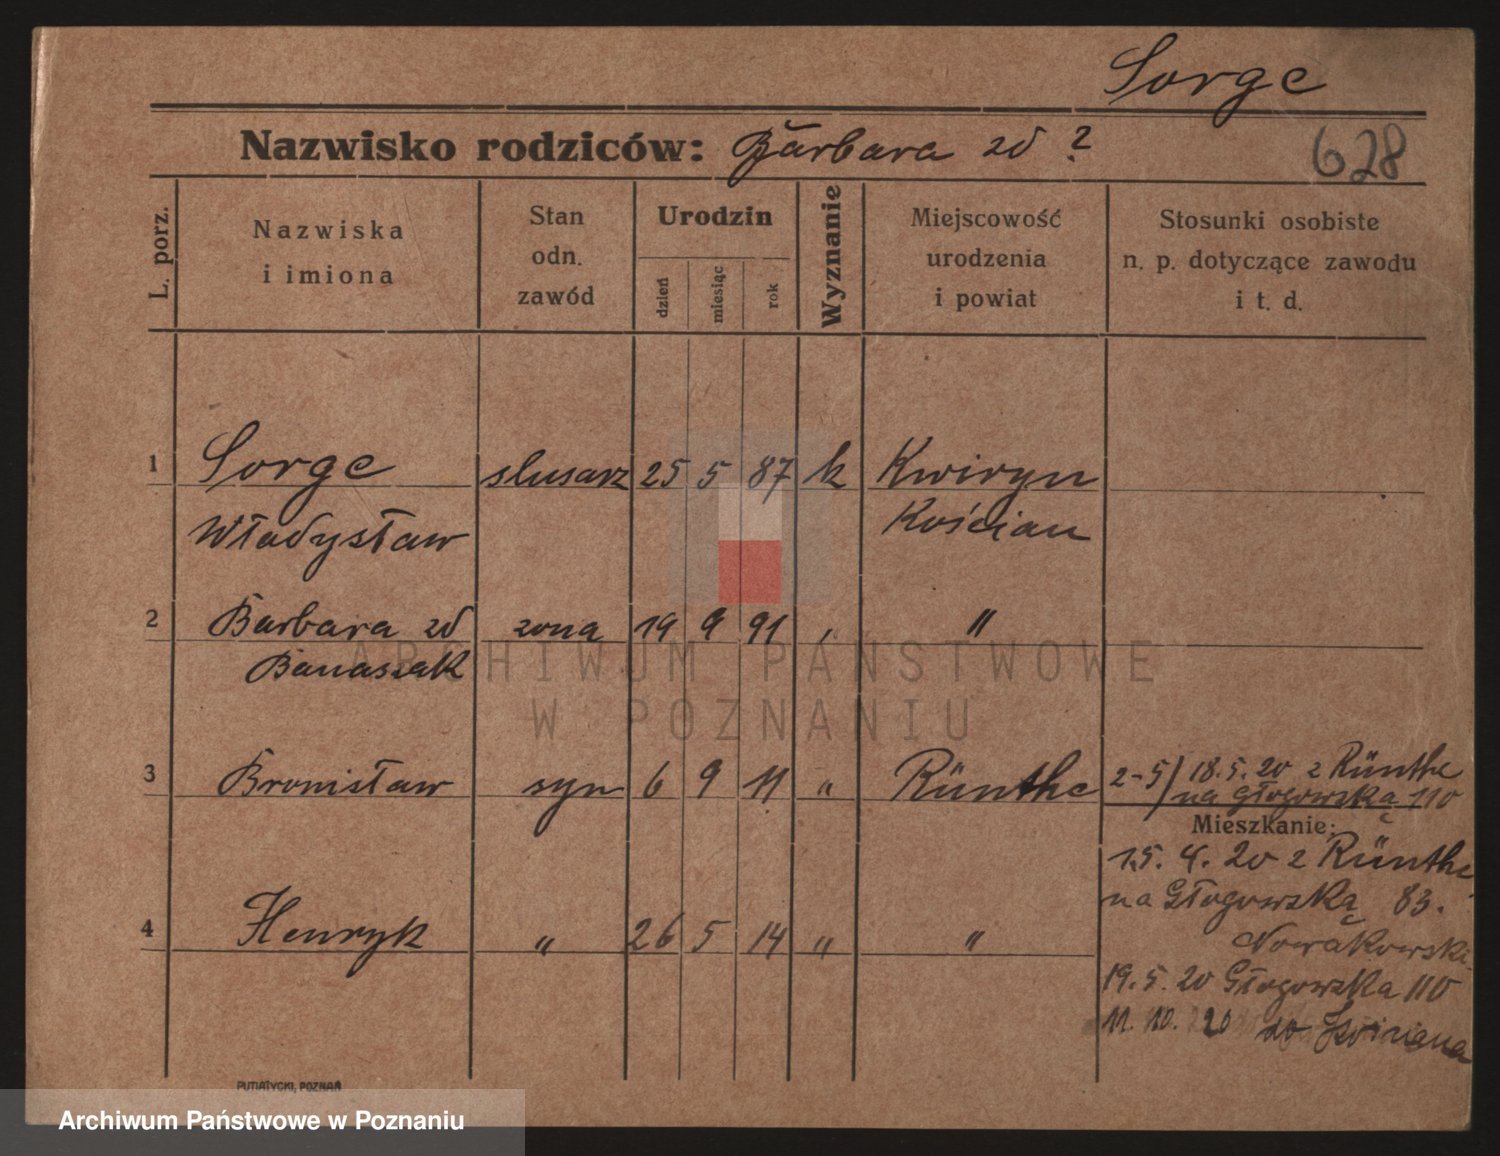 Sorge
Nazwisko rodziców: Barbara zd ?
628
L. porz.
Nazwiska i imiona
Stan odn. zawód
Urodzin
dzień
miesiąc
rok
Wyznanie
Miejscowość urodzenia i powiat
Stosunki osobiste n. p. dotyczące zawodu i t. d.
1 Sorge slusarz 25 5 87 k Kwiryn
Władysław Kościan
2 Barbara zd zona 19 9 91 " "
Banaszak
ARCHIWUM PAŃSTWOWE
W POZNANIU
3 Bronisław syn 6 9 11 " Rünthe 2-5/ 18.5.20 z Rünthe
na Głogowską 110
Mieszkanie:
15. 4. 20 z Rünthe
na Głogowską 83.
4 Henryk " 26 5 14 " "
Nowakowski
19. 5. 20 Głogowska 110
11. 10. 20 do
PUTIATYCKI, POZNAŃ
Archiwum Państwowe w Poznaniu